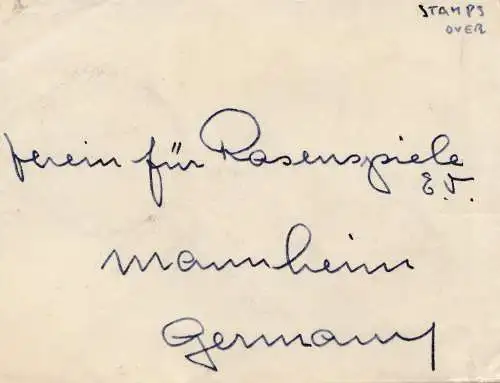 STAMPS
OVER
Verein für Rasenspiele
E.V.
Mannheim
Germany